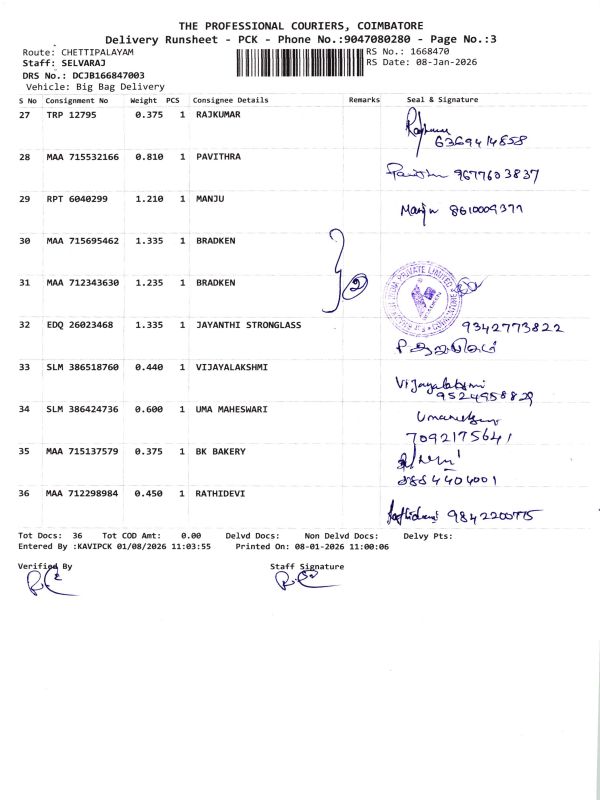 THE PROFESSIONAL COURIERS, COIMBATORE
Delivery Runsheet - PCK - Phone No.:9047080280 - Page No.:3
Route: CHETTIPALAYAM RS No.: 1668470
Staff: SELVARAJ RS Date: 08-Jan-2026
DRS No.: DCJB166847003
Vehicle: Big Bag Delivery
S No Consignment No Weight PCS Consignee Details Remarks Seal & Signature
27 TRP 12795 0.375 1 RAJKUMAR
6369414858
28 MAA 715532166 0.810 1 PAVITHRA
Pavithra 9677603837
29 RPT 6040299 1.210 1 MANJU
Manju 8610009377
30 MAA 715695462 1.335 1 BRADKEN
2
31 MAA 712343630 1.235 1 BRADKEN
32 EDQ 26023468 1.335 1 JAYANTHI STRONGLASS
9342773822
33 SLM 386518760 0.440 1 VIJAYALAKSHMI
Vijayalakshmi
9524958829
34 SLM 386424736 0.600 1 UMA MAHESWARI
7092175641
35 MAA 715137579 0.375 1 BK BAKERY
36 MAA 712298984 0.450 1 RATHIDEVI
Rathidevi 9842200775
Tot Docs: 36 Tot COD Amt: 0.00 Delvd Docs: Non Delvd Docs: Delvy Pts:
Entered By :KAVIPCK 01/08/2026 11:03:55 Printed On: 08-01-2026 11:00:06
Verified By Staff Signature